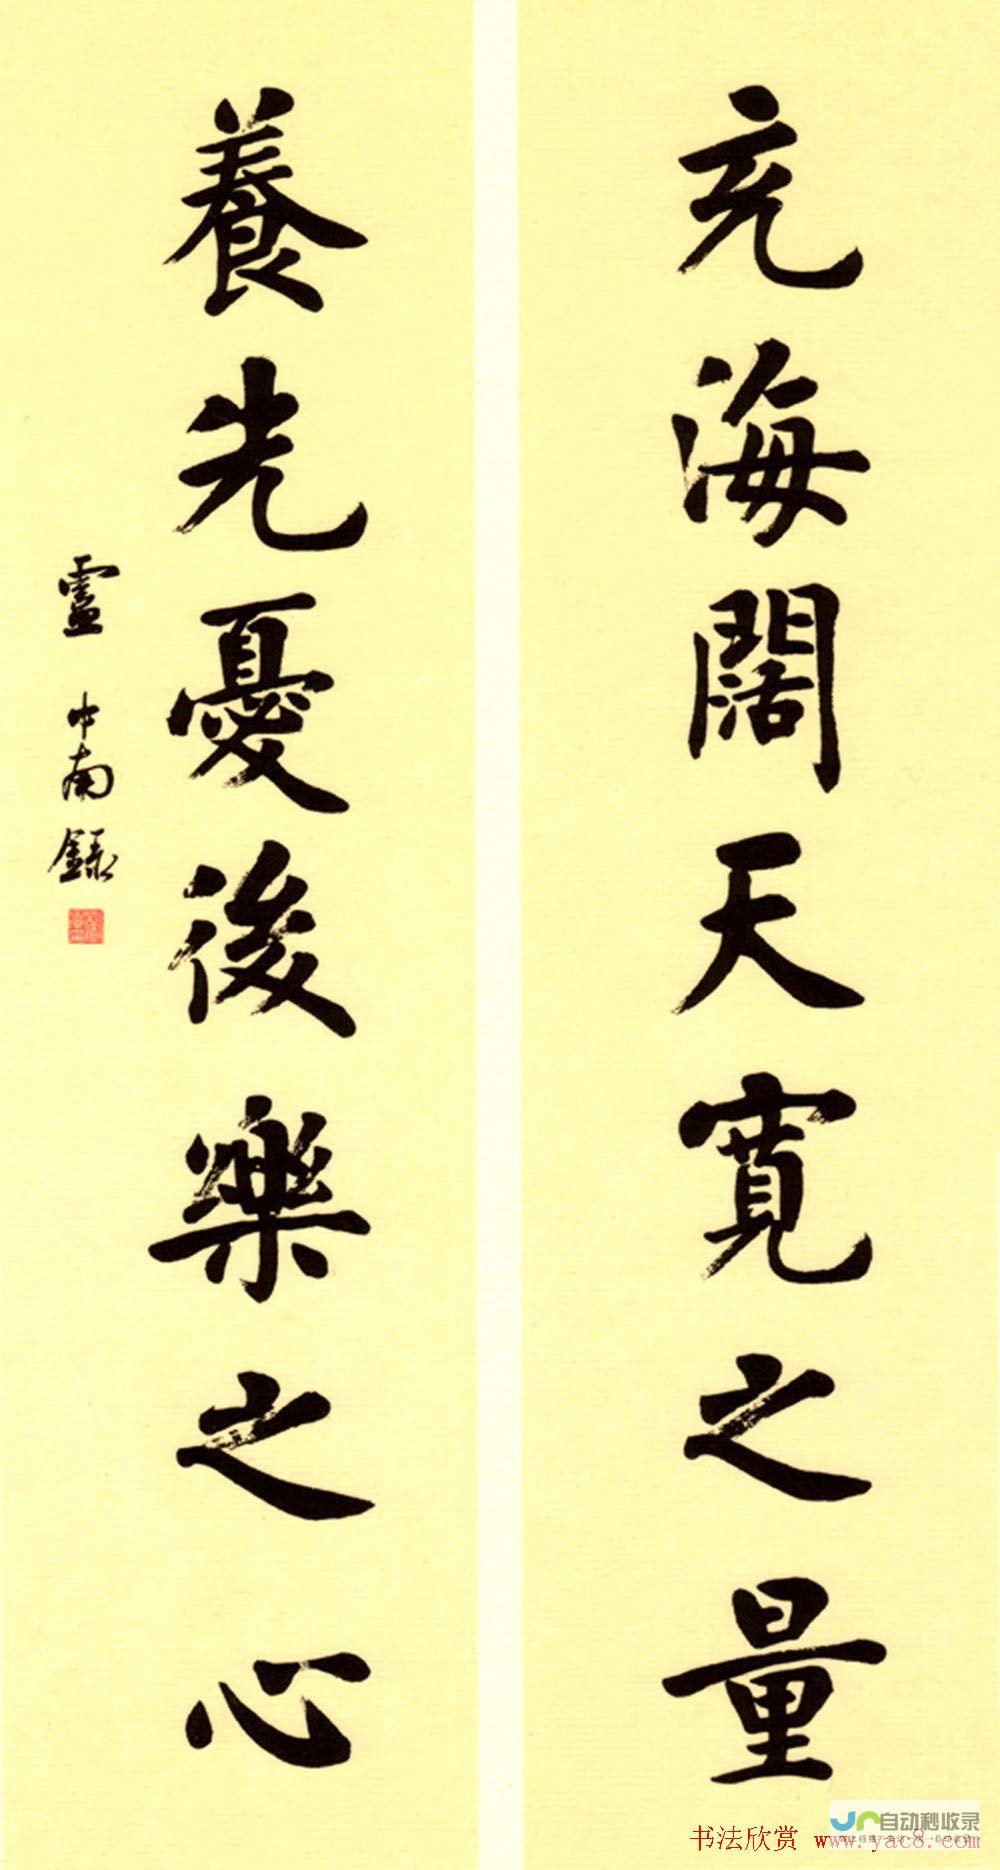 充海闊天寬之量
養先憂後樂之心
盧中南錄
自动秒收录
书法欣赏 www.yac8.com